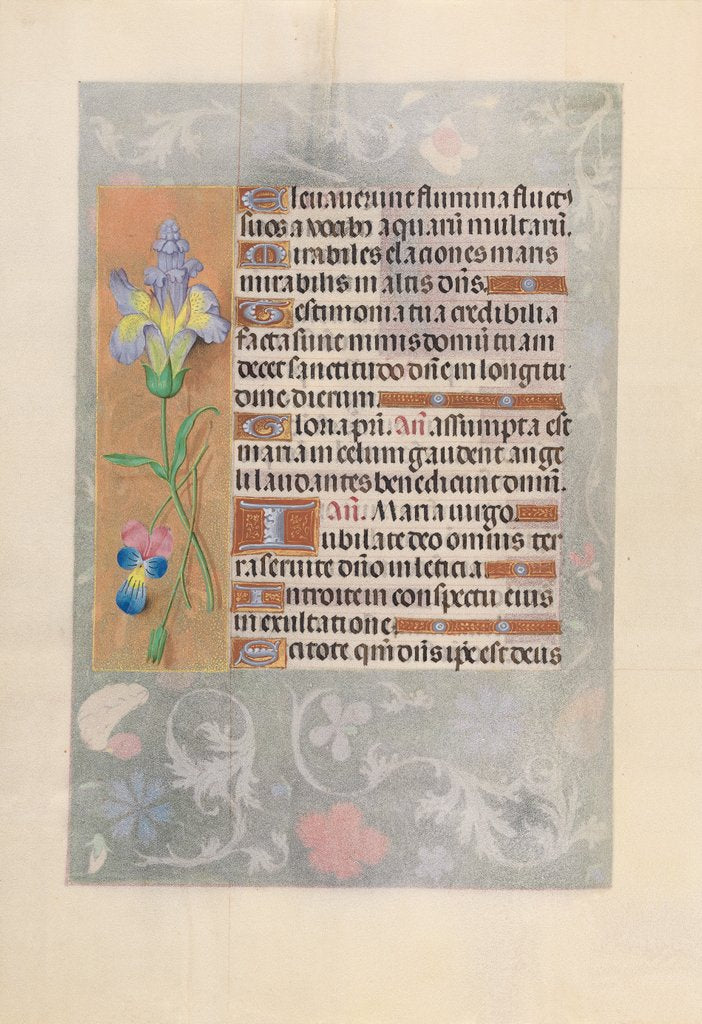 Eleuauerunt flumina fluct
suos a vocibꝫ aquarū multarū.
Mirabiles elaciones maris
mirabilis in altis dn̄s.
Testimonia tua credibilia
facta sunt nimis domū tuam
decet sanctitudo dn̄e in longitu
dine dierum.
Gloria pr̄i. An̄ assumpta est
maria in celum gaudent ange
li laudantes benedicunt dn̄m.
An̄. Maria uirgo.
Iubilate deo omnis ter
ra seruite dn̄o in leticia
Introite in conspectu eius
in exultatione.
Scitote qm̄ dn̄s ip̄e est deus